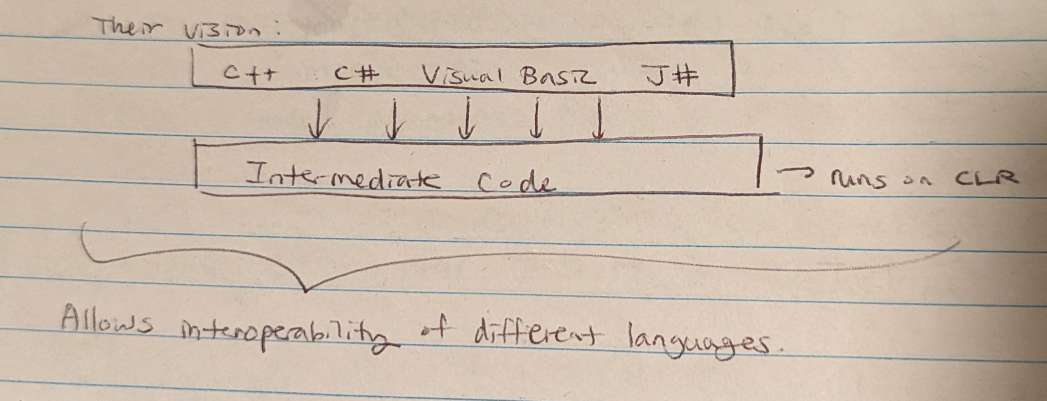 Their vision:
C++ C# Visual Basic J#
Intermediate Code → runs on CLR
Allows interoperability of different languages.